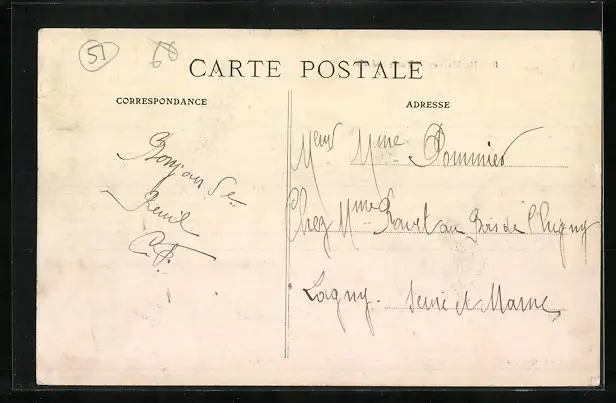 51
60
CARTE POSTALE
CORRESPONDANCE
ADRESSE
Bonjour de
Reuil
C.P.
Meur Mme Pommier
Chez Mme au Bois de Chigny
Lagny. Seine et Marne